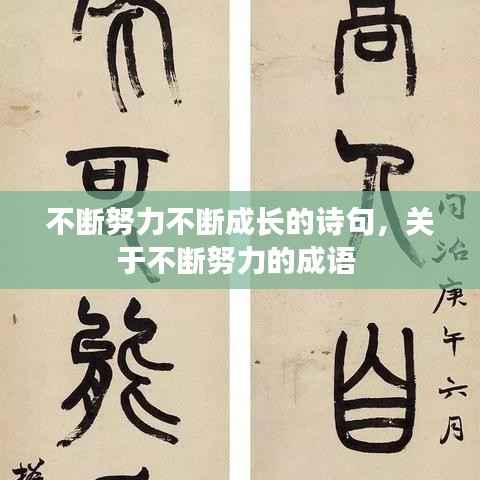 不断努力不断成长的诗句，关
于不断努力的成语
高
自
同治庚午六月
可
能